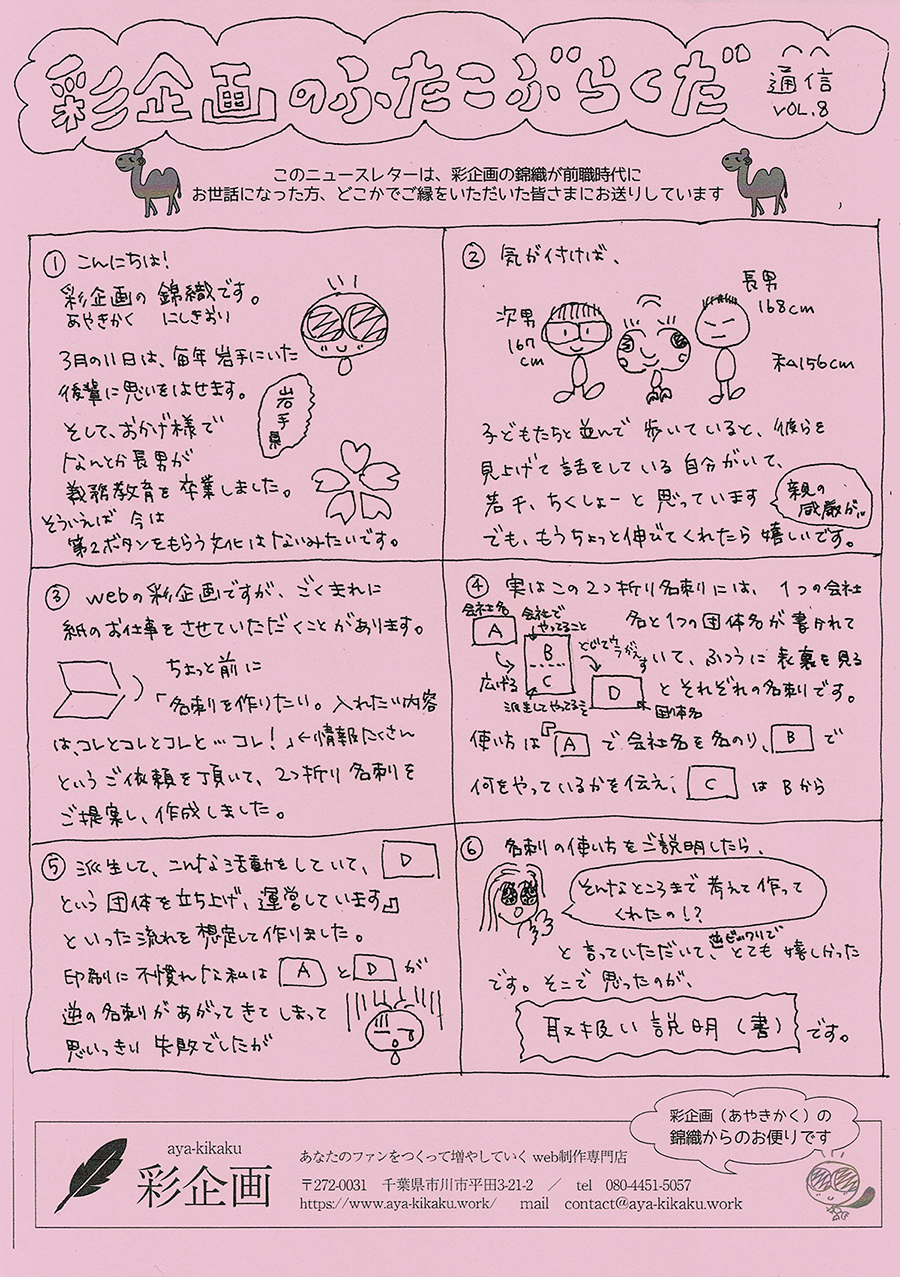 彩企画のふたこぶらくだ
通信
VOL.8
このニュースレターは、彩企画の錦織が前職時代に
お世話になった方、どこかでご縁をいただいた皆さまにお送りしています
① こんにちは!
彩企画の 錦織です。
あやきかく にしきおり
3月の11日は、毎年 岩手にいた
後輩に思いをはせます。
岩手県
そして、おかげ様で
なんとか長男が
義務教育を卒業しました。
そういえば 今は
第2ボタンをもらう文化はないみたいです。
② 気が付けば、
次男
167
cm
長男
168cm
私156cm
子どもたちと並んで 歩いていると、彼らを
見上げて 話をしている 自分がいて、
若干、ちくしょーと 思っています
親の
威厳が…
でも、もうちょっと伸びてくれたら 嬉しいです。
③ webの彩企画ですが、ごくまれに
紙のお仕事をさせていただくことがあります。
ちょっと前に
「名刺を作りたい。入れたい内容
は、コレとコレとコレと…コレ!」←情報たくさん
というご依頼を頂いて、2つ折り名刺を
ご提案し、作成しました。
④ 実はこの2つ折り名刺には、1つの会社
名と1つの団体名が書かれて
いて、ふつうに表裏を見る
とそれぞれの名刺です。
会社名
A
広げる
会社で
やってること
B
C
派生してやってること
とじてウラがえす
D
団体名
使い方は『A で会社名を名のり、B で
何をやっているかを伝え、C は Bから
⑤ 派生して、こんな活動をしていて、D
という団体を立ち上げ、運営しています』
といった流れを想定して作りました。
印刷に不慣れな私は A と D が
逆の名刺があがってきてしまって
思いっきり 失敗でしたが
⑥ 名刺の使い方をご説明したら、
そんなところまで 考えて 作って
くれたの!?
と 言っていただいて、逆ビックリで とても 嬉しかった
です。そこで 思ったのが、
取扱い説明(書) です。
彩企画(あやきかく)の
錦織からのお便りです
aya-kikaku
彩企画
あなたのファンをつくって増やしていく web制作専門店
〒272-0031 千葉県市川市平田3-21-2 / tel 080-4451-5057
https://www.aya-kikaku.work/ mail contact@aya-kikaku.work